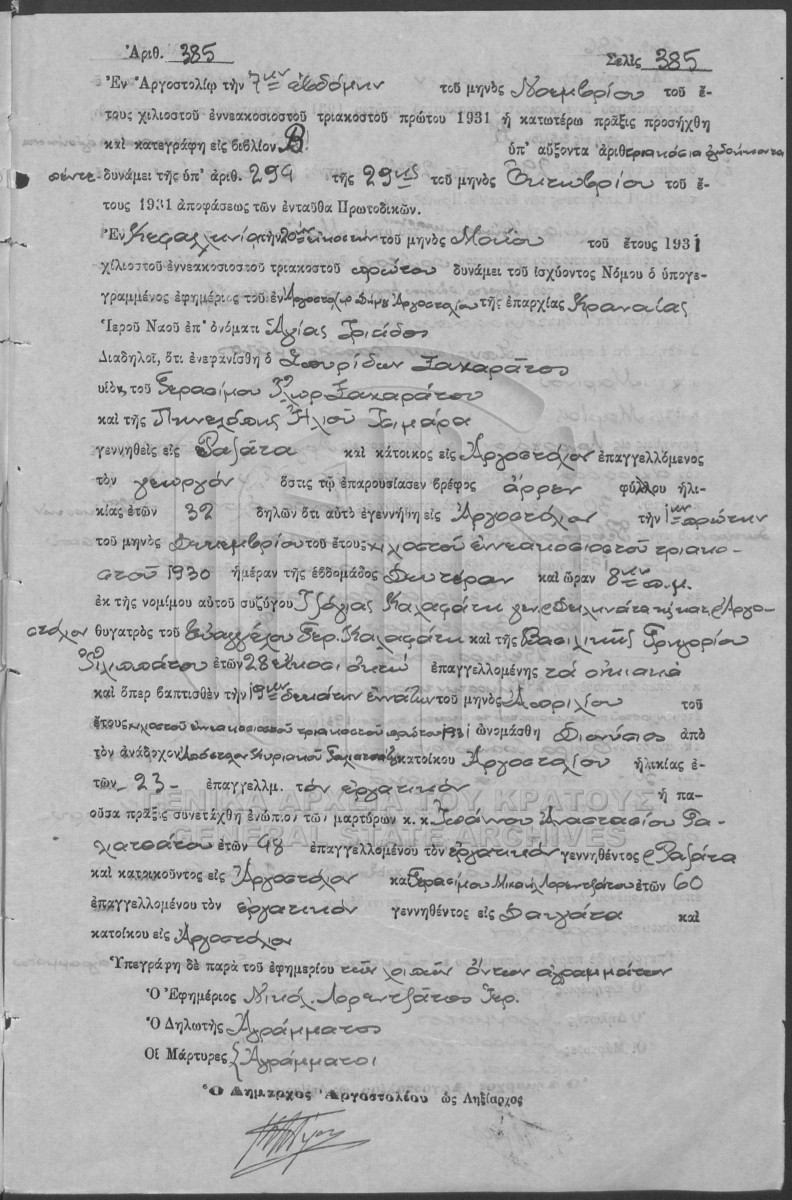 Ἀριθ. 385 Σελὶς 385
Ἐν Ἀργοστολίῳ τὴν 7ην ἑβδόμην τοῦ μηνὸς Νοεμβρίου τοῦ ἔ-
τους χιλιοστοῦ ἐννεακοσιοστοῦ τριακοστοῦ πρώτου 1931 ἡ κατωτέρω πρᾶξις προσήχθη
καὶ κατεγράφη εἰς βιβλίον Β ὑπ' αὔξοντα ἀριθ τριακόσια ὀγδοήκοντα
πέντε δυνάμει τῆς ὑπ' ἀριθ. 299 τῆς 29ης τοῦ μηνὸς Ὀκτωβρίου τοῦ ἔ-
τους 1931 ἀποφάσεως τῶν ἐνταῦθα Πρωτοδικῶν.
Ἐν Κεφαλληνίᾳ τὴν 20ην εἰκοστὴν τοῦ μηνὸς Μαΐου τοῦ ἔτους 1931
χιλιοστοῦ ἐννεακοσιοστοῦ τριακοστοῦ πρώτου δυνάμει τοῦ ἰσχύοντος Νόμου ὁ ὑπογε-
γραμμένος ἐφημέριος τοῦ ἐν Ἀργοστολίῳ Δήμου Ἀργοστολίου τῆς ἐπαρχίας Κραναίας
Ἱεροῦ Ναοῦ ἐπ' ὀνόματι Ἁγίας Τριάδος
Διαδηλοῖ, ὅτι ἐνεφανίσθη ὁ Σπυρίδων Σακαράτος
υἱὸς τοῦ Γερασίμου Σακαράτου
καὶ τῆς Πηνελόπης Ἠλιοῦ
γεννηθεὶς εἰς Ραζάτα καὶ κάτοικος εἰς Ἀργοστόλιον ἐπαγγελλόμενος
τὸν γεωργόν ὅστις τῷ ἐπαρουσίασεν βρέφος ἄρρεν φύλλου ἡλι-
κίας ἐτῶν 32 δηλῶν ὅτι αὐτὸ ἐγεννήθη εἰς Ἀργοστόλιον τὴν 1ην πρώτην
τοῦ μηνὸς Δεκεμβρίου τοῦ ἔτους χιλιοστοῦ ἐννεακοσιοστοῦ τριακο-
στοῦ 1930 ἡμέραν τῆς ἑβδομάδος Δευτέραν καὶ ὥραν 8ην π.μ.
ἐκ τῆς νομίμου αὐτοῦ συζύγου Τζόγιας Καλαφάτη γεν. κατ. Ἀργο-
στόλιον θυγατρὸς τοῦ Εὐαγγέλου Γερ. Καλαφάτη καὶ τῆς Βασιλικῆς Γρηγορίου
Φιλιππάτου ἐτῶν 28 εἴκοσι ὀκτώ ἐπαγγελλομένης τὰ οἰκιακά
καὶ ὅπερ βαπτισθὲν τὴν 19ην δεκάτην ἐννάτην τοῦ μηνὸς Ἀπριλίου τοῦ
ἔτους χιλιοστοῦ ἐννεακοσιοστοῦ τριακοστοῦ πρώτου 1931 ὠνομάσθη Διονύσιος ἀπὸ
τὸν ἀνάδοχον Ἀπόστολον Κυριακοῦ κατοίκου Ἀργοστολίου ἡλικίας ἐ-
τῶν -23- ἐπαγγελλμ. τὸν ἐργατικόν ἡ πα-
ροῦσα πρᾶξις συνετάχθη ἐνώπιον τῶν μαρτύρων κ. κ. Ἰωάννου Ἀναστασίου Ρα-
λιατσάτου ἐτῶν 48 ἐπαγγελλομένου τὸν ἐργατικόν γεννηθέντος Ραζάτα
καὶ κατοικοῦντος εἰς Ἀργοστόλιον καὶ Γερασίμου Μιχαὴλ Λορεντζάτου ἐτῶν 60
ἐπαγγελλομένου τὸν ἐργατικόν γεννηθέντος εἰς Δαυγάτα καὶ
κατοίκου εἰς Ἀργοστόλιον
Ὑπεγράφη δὲ παρὰ τοῦ ἐφημερίου τῶν λοιπῶν ὄντων ἀγραμμάτων
Ὁ Ἐφημέριος Νικόλ. Λορεντζάτος Ἱερ.
Ὁ Δηλωτὴς Ἀγράμματος
Οἱ Μάρτυρες Ἀγράμματοι
Ὁ Δήμαρχος Ἀργοστολίου ὡς Ληξίαρχος
ΓΕΝΙΚΑ ΑΡΧΕΙΑ ΤΟΥ ΚΡΑΤΟΥΣ
GENERAL STATE ARCHIVES